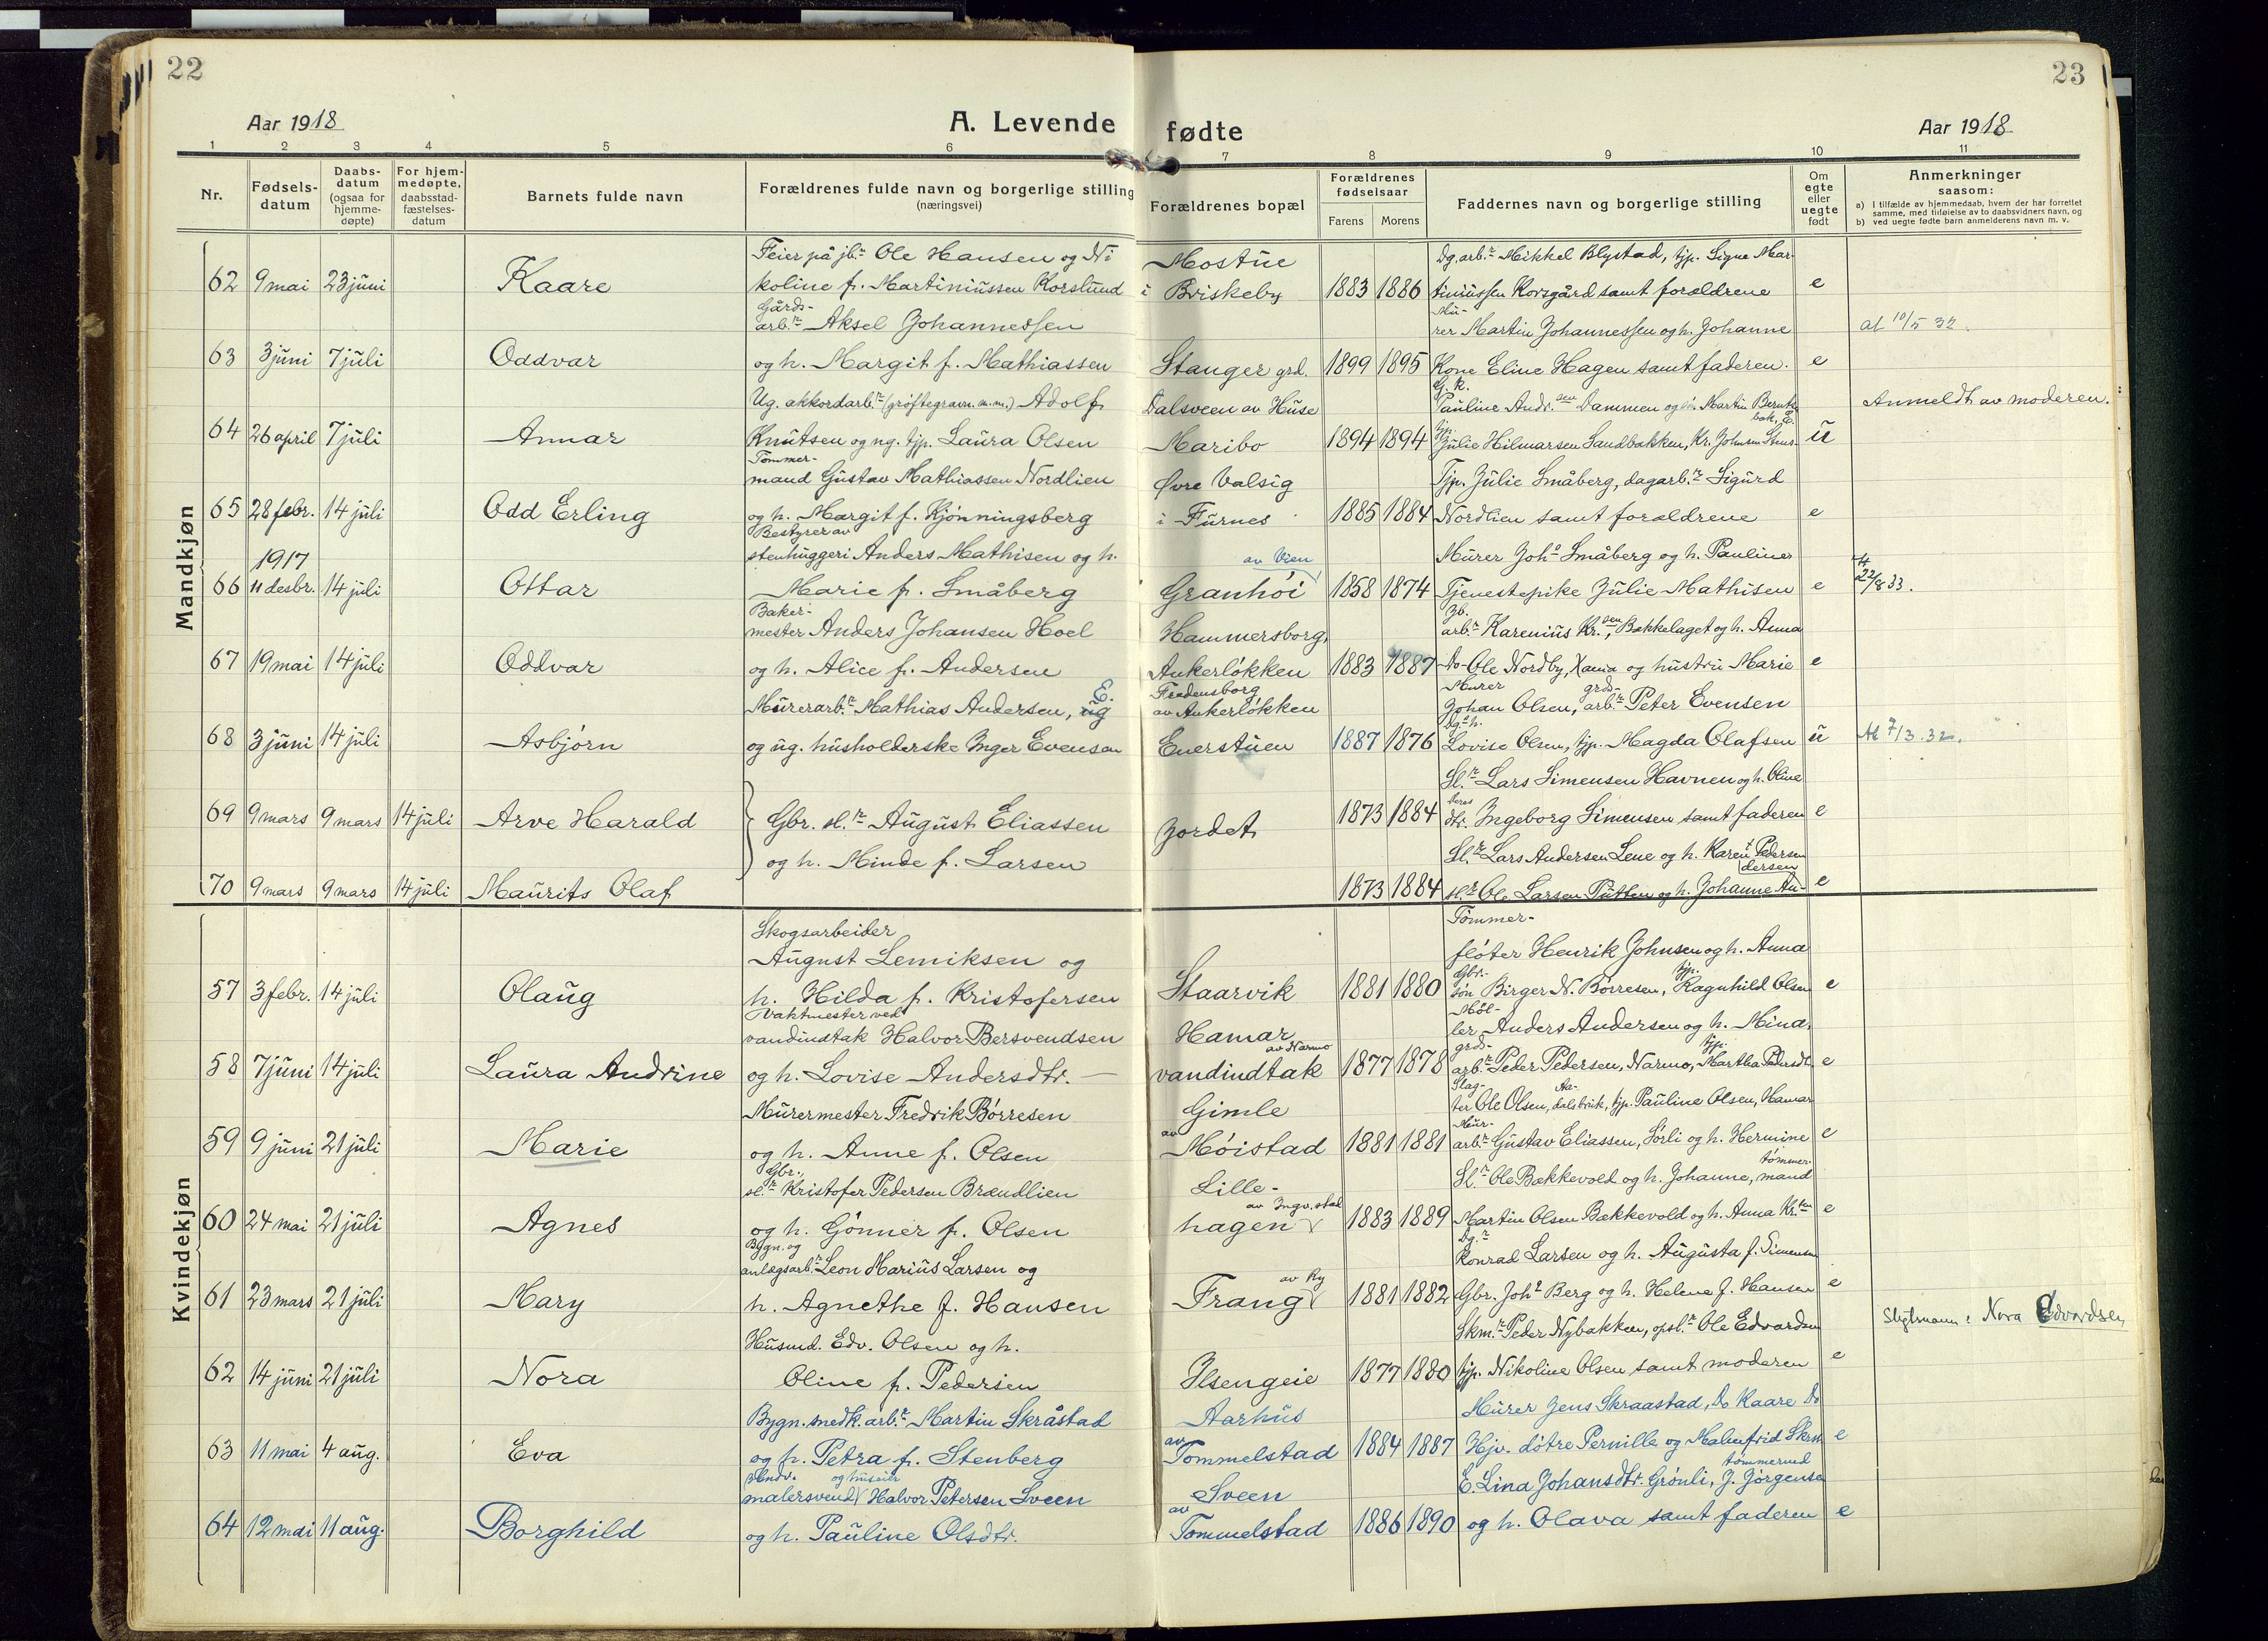 22
23
Aar 1918
A. Levende fødte
Aar 1918
1 2 3 4 5 6 7 8 9 10 11
Nr.
Fødsels-
datum
Daabs-
datum
(ogsaa for
hjemme-
døpte)
For hjem-
medøpte,
daabsstad-
fæstelses-
datum
Barnets fulde navn
Forældrenes fulde navn og borgerlige stilling
(næringsvei)
Forældrenes bopæl
Forældrenes
fødselsaar
Farens Morens
Faddernes navn og borgerlige stilling
Om
egte
eller
uegte
født
Anmerkninger
saasom:
a) I tilfælde av hjemmedaab, hvem der har forrettet
samme, med tilføielse av to daabsvidners navn, og
b) ved uegte fødte barn anmelderens navn m. v.
Mandkjøn
Feier på jb.n Ole Hansen og Ni Mostue Dg.arb.r Mikkel Blystad, tjp. Signe Mar-
62 9 mai 23 juni Kaare koline f. Martiniussen Korslund i Briskeby 1883 1886 tiniussen Korsgård samt forældrene e
Gårds-
arb.r Aksel Johannessen Mu-
rer Martin Johannessen og h. Johanne at 10/5 32.
63 3 juni 7 juli Oddvar og h. Margit f. Mathiassen Stanger grd. 1899 1895 Kone Eline Hagen samt faderen. e
Ug. akkordarb.r (grøftegravn. m.m.) Adolf Dalsveen av Huse G. k.
Pauline Andr.sen Dammen og Martin Bernts- Anmeldt av moderen.
64 26 april 7 juli Annar Knutsen og ug. tjp. Laura Olsen Maribo 1894 1894 tjp. Julie Hilmarsen Sandbakken, Kr. Johnsen u
Tømmer-
mand Gustav Mathiassen Nordlien Øvre Valsig Tjp. Julie Småberg, dagarb.r Sigurd
65 28 febr. 14 juli Odd Erling og h. Margit f. Kjønningsberg i Furnes 1885 1884 Nordlien samt forældrene e
1917 Bestyrer av
stenhuggeri Anders Mathisen og h. av Vien Murer Joh.s Småberg og h. Pauline
66 11 desbr. 14 juli Ottar Marie f. Småberg Granhøi 1858 1874 Tjenestepike Julie Mathisen e 22/8 33.
Baker-
mester Anders Johansen Hoel Hammersborg, Jb.
arb.r Karenius Kr.sen, Bakkelaget og h. Anna
67 19 mai 14 juli Oddvar og h. Alice f. Andersen Ankerløkken 1883 1887 Do Ole Nordby, Xania og hustru Marie e
Murerarb.r Mathias Andersen, ug E. Fredensborg
av Ankerløkken Murer grds-
Johan Olsen, arb.r Peter Evensen
68 3 juni 14 juli Asbjørn og ug. husholderske Inger Evensen Enerstuen 1887 1876 Lovise Olsen, tjp. Magda Olafsen u At 7/3.32.
Sl.r Lars Simensen Havnen og h. Oline
69 9 mars 9 mars 14 juli Arve Harald Gbr. sl.r August Eliassen Jordet 1873 1884 deres
dtr. Ingeborg Simensen samt faderen e
og h. Minde f. Larsen Sl.r Lars Andersen Lene og h. Karen f. Pedersen
70 9 mars 9 mars 14 juli Maurits Olaf 1873 1884 sl.r Ole Larsen Putten og h. Johanne An-dersen e
Kvindekjøn
Skogsarbeider Tømmer-
August Lemiksen og fløter Henrik Johnsen og h. Anna
57 3 febr. 14 juli Olaug h. Hilda f. Kristofersen Staarvik 1881 1880 Gbr.-
søn Birger N. Børresen, tjp. Ragnhild Olsen e
Vaktmester ved
vandindtak Halvor Bersvendsen Hamar Møl-
ler Anders Andersen og h. Mina
58 7 juni 14 juli Laura Andrine og h. Lovise Andersdtr. av Narmo
vandindtak 1877 1878 grds-
arb.r Peder Pedersen, Narmo, tjp. Martha Pedersdt. e
Murermester Fredrik Børresen Gimle Slag-
ter Ole Olsen, Aa-
dalsbruk, tjp. Pauline Olsen, Hamar
59 9 juni 21 juli Marie og h. Anne f. Olsen av
Møistad 1881 1881 Mur-
arb.r Gustav Eliassen, Sørli og h. Hermine e
Gbr.,
sl.r Kristofer Pedersen Brændlien Lille- Sl.r Ole Bækkevold og h. Johanne, tømmer-
mand
60 24 mai 21 juli Agnes og h. Gønner f. Olsen av Ingv.stad
hagen 1883 1889 Martin Olsen Bækkevold og h. Anna Kr.sen e
Bygn. og
anlægsarb.r Leon Marius Larsen og Dg.r
Konrad Larsen og h. Augusta f. Simensen
61 23 mars 21 juli Mary h. Agnethe f. Hansen av Ry
Frang 1881 1882 Gbr. Joh.s Berg og h. Helene f. Hansen e
Husmd. Edv. Olsen og h. Skm.r Peder Nybakken, opsl.r Ole Edvardsen Slgtsnavn: Nora Edvardsen
62 14 juni 21 juli Nora Oline f. Pedersen Ilsengeie 1877 1880 tjp. Nikoline Olsen samt moderen e
Bygn. snedk. arb.r Martin Skråstad Aarhus Murer Jens Skraastad, Do Kaare Do
63 11 mai 4 aug. Eva og h. Petra f. Stenberg av
Tommelstad 1884 1887 Hjv. døtre Pernille og Malmfrid Skrm e
og huseier
malersvend Halvor Petersen Sveen Sveen E. Lina Johansdtr. Grønli, tømmermd J. Jørgensen
64 12 mai 11 aug. Borghild og h. Pauline Olsdtr. av
Tommelstad 1886 1890 og h. Olava samt faderen e